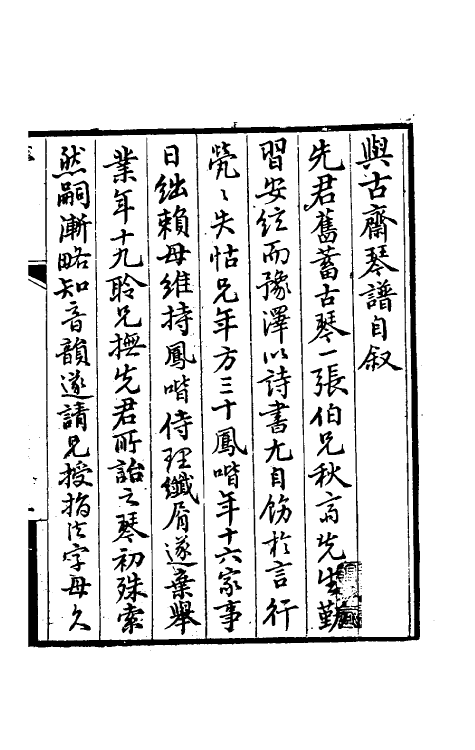 與古齋琴譜自叙
先君舊蓄古琴一張伯兄秋齋先生勤
習安絃而豫澤以詩書尤自飭於言行
煢〻失怙兄年方三十鳳喈年十六家事
日絀賴母維持鳳喈侍理纖屑遂棄舉
業年十九聆兄撫先君所詒之琴初殊索
然嗣漸略知音韻遂請兄授指法字母久